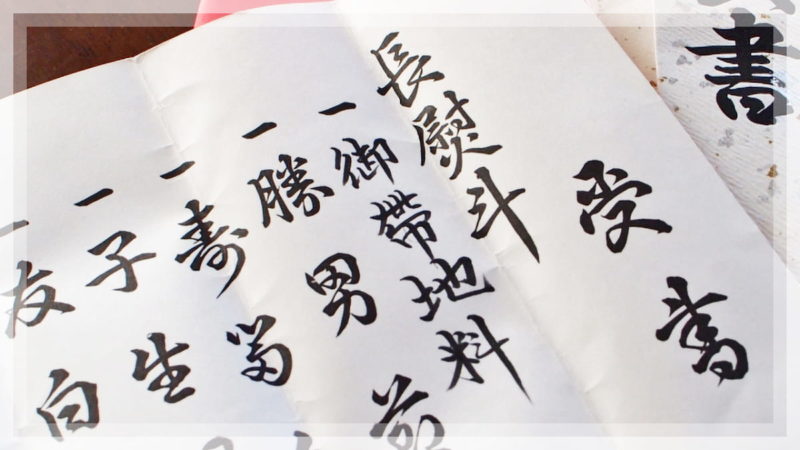 書
受書
長熨斗
一御帶地料
一勝男
一寿留
一子生
一友白